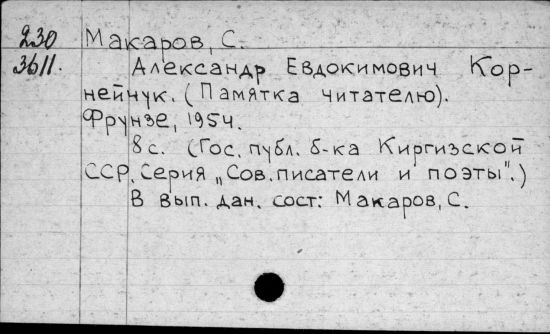 230 Макаров, С.
3611. Александр Евдокимович Кор-
нейчук. (Памятка читателю).
Фрунзе, 1954.
8с. (Гос. публ. б-ка Киргизской
ССР. Серия „Сов. писатели и поэты".)
В вып. дан. сост: Макаров, С.